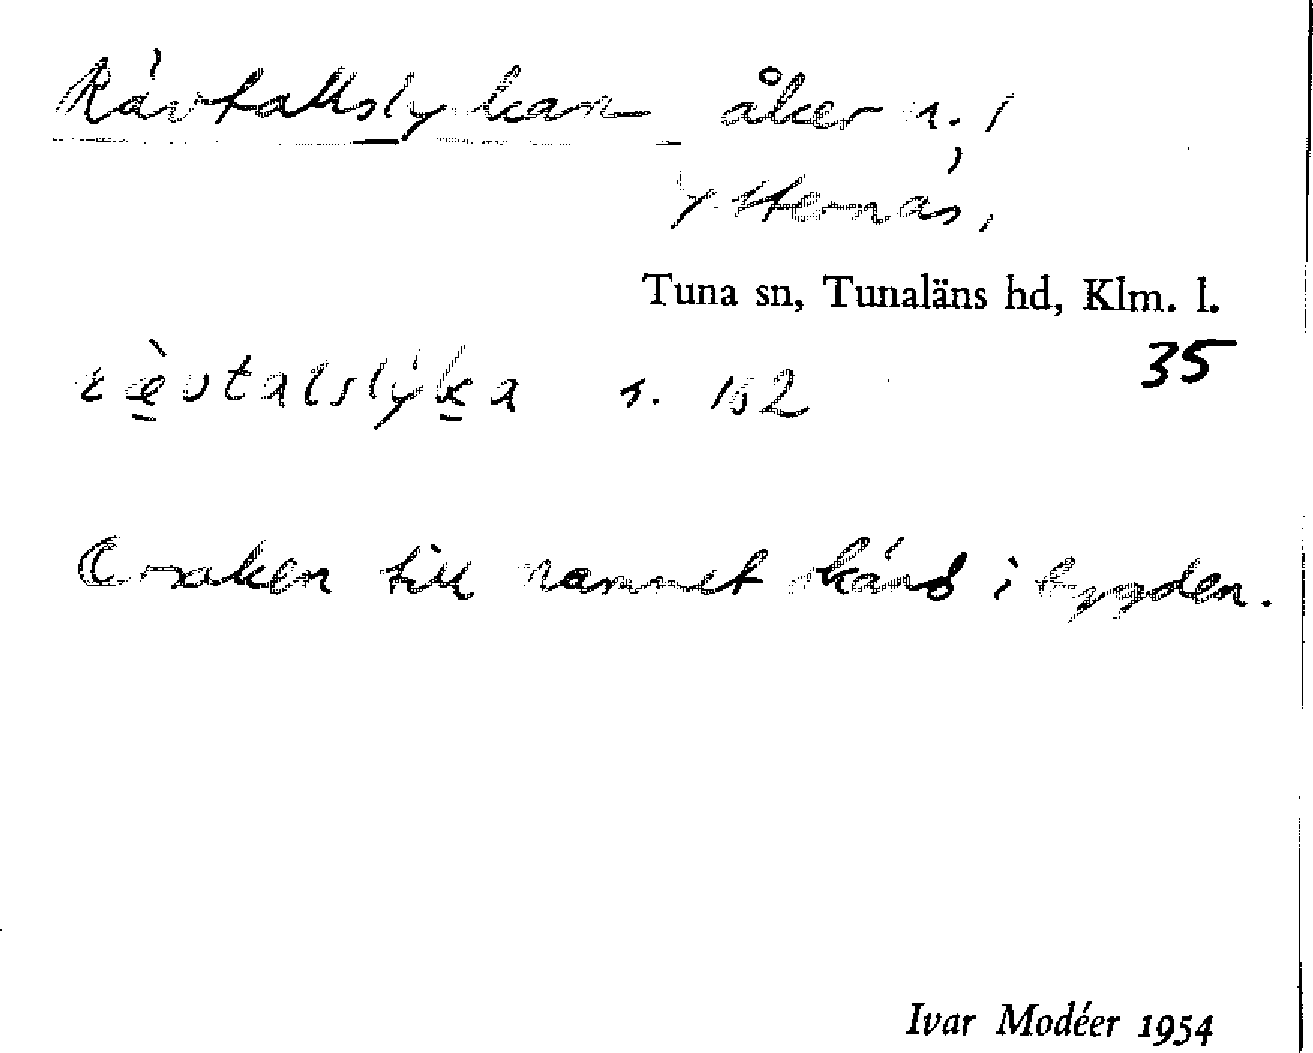 Rävtallslyckan åker n. 1
Ytternäs,
Tuna sn, Tunaläns hd, Klm. l.
35
rævtalslyka s. 162
Orsaken till namnet okänd i bygden.
Ivar Modéer 1954